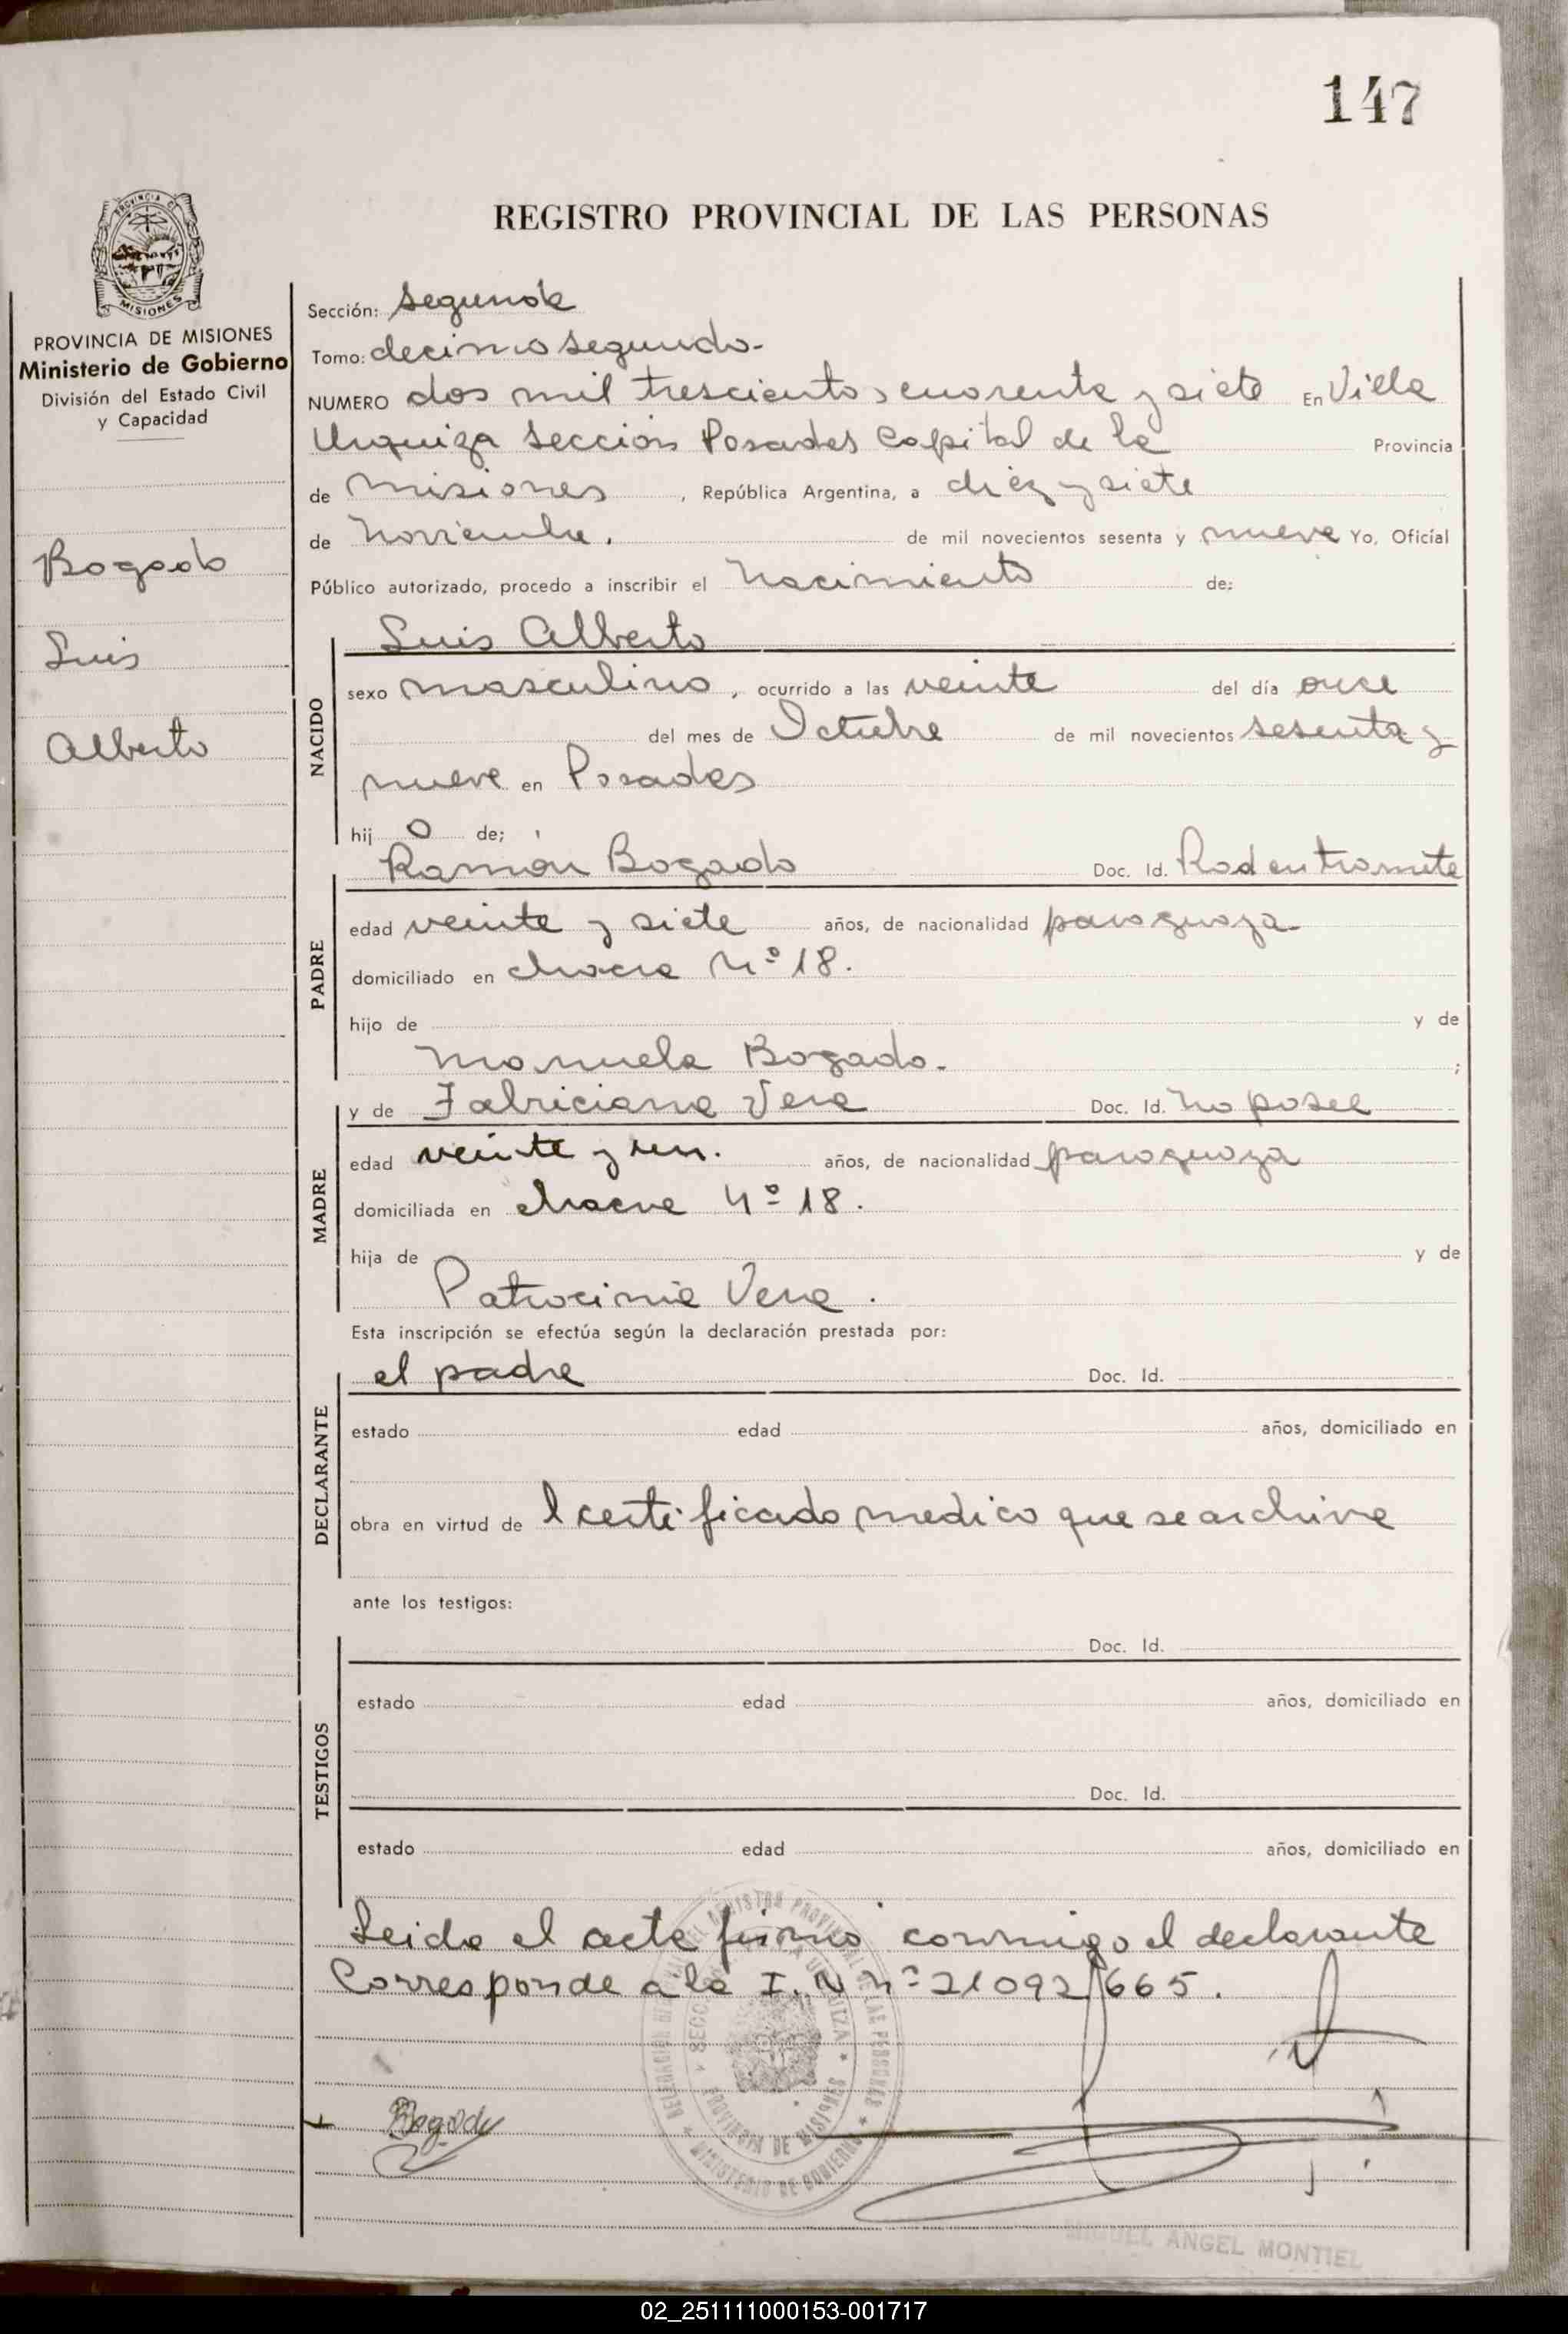 147
REGISTRO PROVINCIAL DE LAS PERSONAS
PROVINCIA DE MISIONES
PROVINCIA DE MISIONES
Ministerio de Gobierno
División del Estado Civil
y Capacidad
Bogado
Luis
Alberto
Sección: segunda
Tomo: decimo segundo-
NUMERO dos mil trescientos cuarenta y siete En Villa
Urquiza Sección Posadas Capital de la Provincia
de Misiones , República Argentina, a diez y siete
de Noviembre. de mil novecientos sesenta y nueve Yo, Oficial
Público autorizado, procedo a inscribir el Nacimiento de:
NACIDO
Luis Alberto
sexo masculino , ocurrido a las veinte del día once
del mes de Octubre de mil novecientos sesenta y
nueve en Posadas
hij o de;
PADRE
Ramón Bogado Doc. Id. Rad en tramite
edad veinte y siete años, de nacionalidad paraguaya-
domiciliado en chacra Nº 18.
hijo de y de
Manuela Bogado. ;
MADRE
y de Fabriciana Vera Doc. Id. No posee
edad veinte y un. años, de nacionalidad paraguaya
domiciliada en chacra Nº 18.
hija de y de
Patrocinia Vera.
Esta inscripción se efectúa según la declaración prestada por:
DECLARANTE
el padre Doc. Id.
estado edad años, domiciliado en
obra en virtud de l certificado medico que se archiva
ante los testigos:
TESTIGOS
Doc. Id.
estado edad años, domiciliado en
Doc. Id.
estado edad años, domiciliado en
Leida el acta firmó conmigo el declarante
Corresponde a la I. N nº 21092665.
MIGUEL ANGEL MONTIEL
02_251111000153-001717